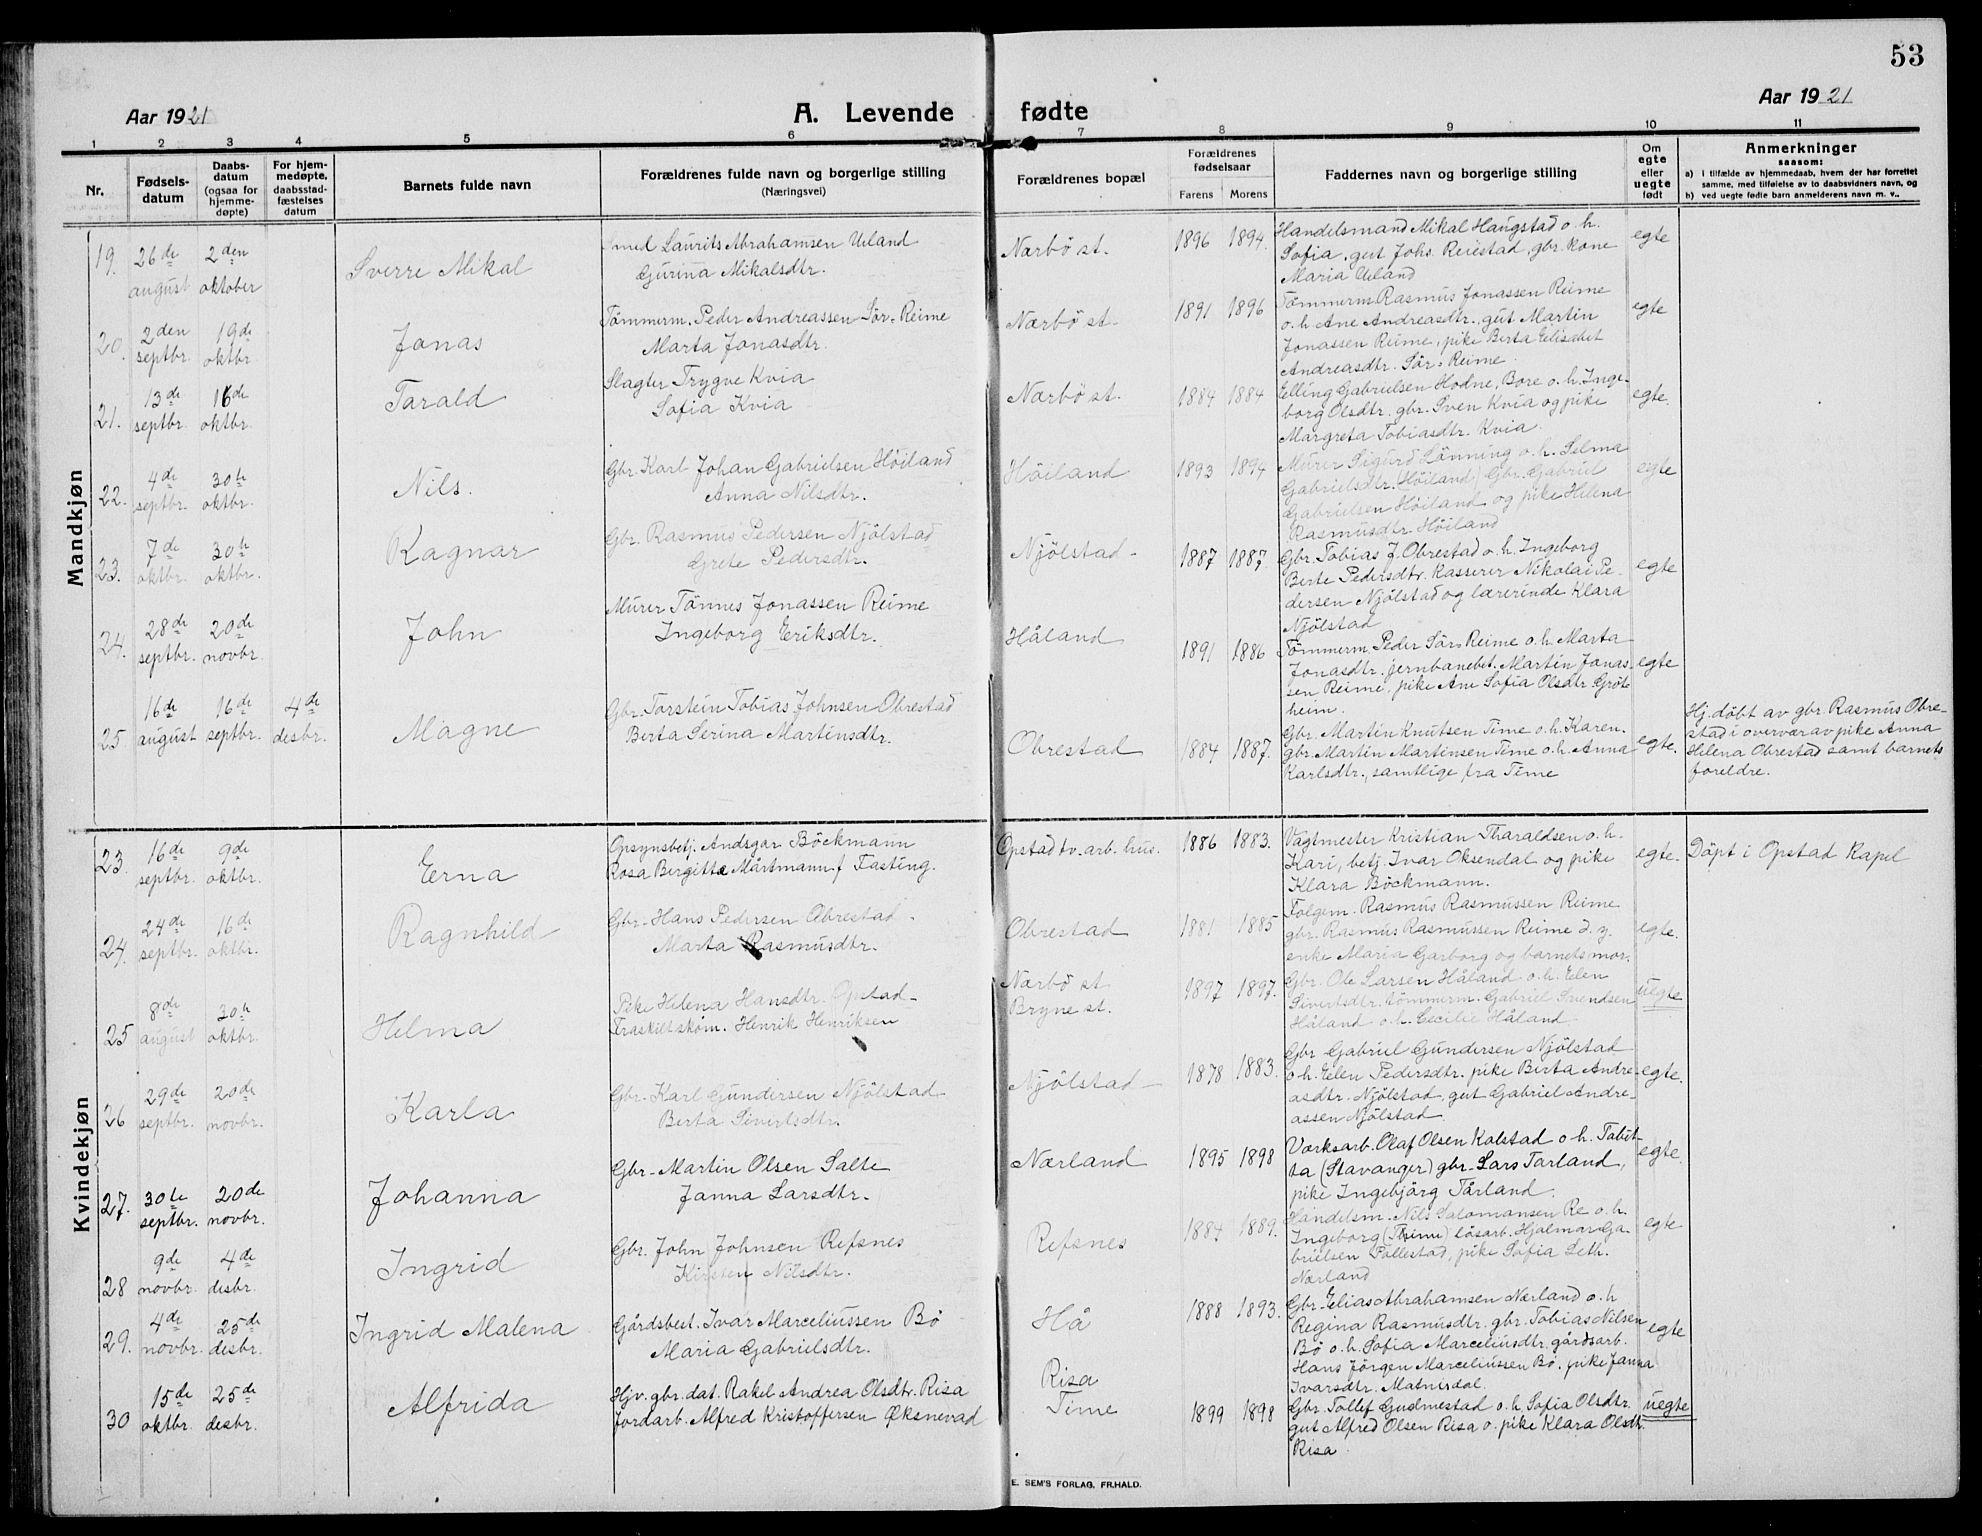 53
Aar 1921
A. Levende fødte
Aar 1921
1 2 3 4 5 6 7 8 9 10 11
Nr.
Fødsels-
datum
Daabs-
datum
(ogsaa for
hjemme-
døpte)
For hjem-
medøpte,
daabsstad-
fæstelses
datum
Barnets fulde navn
Forældrenes fulde navn og borgerlige stilling
(Næringsvei)
Forældrenes bopæl
Forældrenes
fødselsaar
Farens Morens
Faddernes navn og borgerlige stilling
Om
egte
eller
uegte
født
Anmerkninger
saasom:
a) i tilfælde av hjemmedaab, hvem der har forrettet
samme, med tilføielse av to daabsvidners navn, og
b) ved uegte fødte barn anmelderens navn m. v..
Mandkjøn
19. 26de august 2den oktober
Sverre Mikal
Smed Laurits Abrahamsen Ueland
Gurina Mikalsdtr.
Nærbö st.
1896 1894.
Handelsmand Mikal Haugstad o. h.
Sofia, gut Johs. Reiestad, gbr. kone
Maria Ueland
egte
20. 2den septbr. 19de oktbr.
Jonas
Tömmerm. Peder Andreassen Sör-Reime
Marta Jonasdtr.
Nærbö st.
1891 1896
Tömmerm. Rasmus Jonassen Reime
o. h. Ane Andreasdtr., gut Martin
Jonassen Reime, pike Berta Elisabet
Andreasdtr. Sör-Reime.
egte
21. 13de septbr. 16de oktbr.
Tarald
Slagter Trygve Kvia
Sofia Kvia
Nærbö st.
1884 1884
Elling Gabrielsen Hodne, Bore o. h. Inge-
borg Olsdtr. gbr. Sven Kvia og pike
Margreta Tobiasdtr. Kvia.
egte.
22. 4de septbr. 30te oktbr.
Nils.
Gbr. Karl Johan Gabrielsen Höiland
Anna Nilsdtr.
Höiland
1893 1894
Murer Sigurd Lönning o. h. Selma
Gabrielsdtr. (Höiland) Gbr. Gabriel
Gabrielsen Höiland og pike Helena
Rasmusdtr. Höiland
egte
23. 7de oktbr. 30te oktbr.
Ragnar
Gbr. Rasmus Pedersen Njölstad
Grete Pedersdtr.
Njölstad-
1887 1887.
Gbr. Tobias J. Obrestad o. h. Ingeborg
Berte Pedersdtr. kasserer Nikolai Pe-
dersen Njölstad og lærerinde Klara
Njölstad
egte
24. 28de septbr. 20de novbr.
John
Murer Tönnes Jonassen Reime
Ingeborg Eriksdtr.
Håland
1891 1886
Tömmerm. Peder Sör-Reime o. h. Marta
Jonasdtr. jernbanebet. Martin Jonas-
sen Reime, pike Ane Sofia Olsdtr. Gröte
heim.
egte
25 16de august 16de septbr. 4de desbr.
Magne
Gbr. Torstein Tobias Johnsen Obrestad
Berta Serina Martinsdtr.
Obrestad
1884 1887.
Gbr. Martin Knutsen Time o. h. Karen.
gbr. Martin Martinsen Time o. h. Anna
Karlsdtr., samtlige fra Time
egte.
Hj. döbt av gbr. Rasmus Obre-
stad i overvær av pike Anna
Helena Obrestad samt barnets
foreldre.
Kvindekjøn
23. 16de septbr. 9de oktbr.
Erna
Opsynsbetj. Andsgar Böckmann
Rosa Birgitte Mårtmann f. Fasting.
Opstad tv. arb. hus.
1886 1883.
Vagtmester Kristian Tharaldsen o. h.
Kari, betj. Ivar Oksendal og pike
Klara Böckmann.
egte.
Döpt i Opstad kapel
24. 24de septbr. 16de oktbr.
Ragnhild
Gbr. Hans Pedersen Obrestad.
Marta Rasmusdtr.
Obrestad
1881 1885
Folgem. Rasmus Rasmussen Reime
gbr. Rasmus Rasmussen Reime d. y.
enke Maria Garborg og barnets mor.
egte.
25 8de august 30te oktbr.
Helma
Pike Helena Hansdtr. Opstad-
Fraskilt skom. Henrik Henriksen
Nærbö st
Bryne st.
1897 1897.
Gbr. Ole Larsen Håland o. h. Elen
Sivertsdtr. tömmerm. Gabriel Svendsen
Håland o. h. Cecilie Håland
uegte
26 29de septbr. 20de novbr.
Karla
Gbr. Karl Gundersen Njölstad
Berta Sivertsdtr.
Njölstad-
1878 1883.
Gbr Gabriel Gundersen Njölstad
o. h. Elen Pedersdtr. pike Berta Andre-
asdtr. Njölstad, gut Gabriel Andre-
assen Njölstad.
egte.
27. 30te septbr. 20de novbr.
Johanna
Gbr. Martin Olsen Salte
Janna Larsdtr.
Nærland
1895 1898
Værksarb. Olaf Olsen Kalstad o. h. Tabit-
ta (Stavanger) gbr. Lars Tarland,
pike Ingebjörg Tårland.
egte.
28 9de novbr. 4de desbr.
Ingrid
Gbr. John Johnsen Refsnes
Kirsten Nilsdtr.
Refsnes
1884 1889.
Handelsm. Nils Salomonsen Re o. h.
Ingeborg (Thime) lösarb. Hjalmar Ga-
brielsen Pollestad, pike Sofia Leth.
Nærland
egte
29. 4de novbr. 25de desbr.
Ingrid Malena
Gårdsbest. Ivar Marceliussen Bö
Maria Gabrielsdtr.
Hå
1888 1893.
Gbr. Elias Abrahamsen Nærland o. h
Regina Rasmusdtr. gbr. Tobias Nilsen
Bö o. h. Sofia Marceliusdtr. gårdsarb.
Hans Jörgen Marceliussen Bö, pike Janna
Ivarsdtr. Matnisdal.
egte
30 15de oktbr. 25de desbr.
Alfrida
Hjv. gbr. dat. Rakel Andrea Olsdtr. Risa
Jordarb. Alfred Kristoffersen Øksnevad
Risa
Time
1899 1898
Gbr. Tollef Gudmestad o. h. Sofia Olsdtr.
gut Alfred Olsen Risa o. pike Klara Olsdtr.
Risa.
uegte
E. SEM'S FORLAG, FR.HALD.